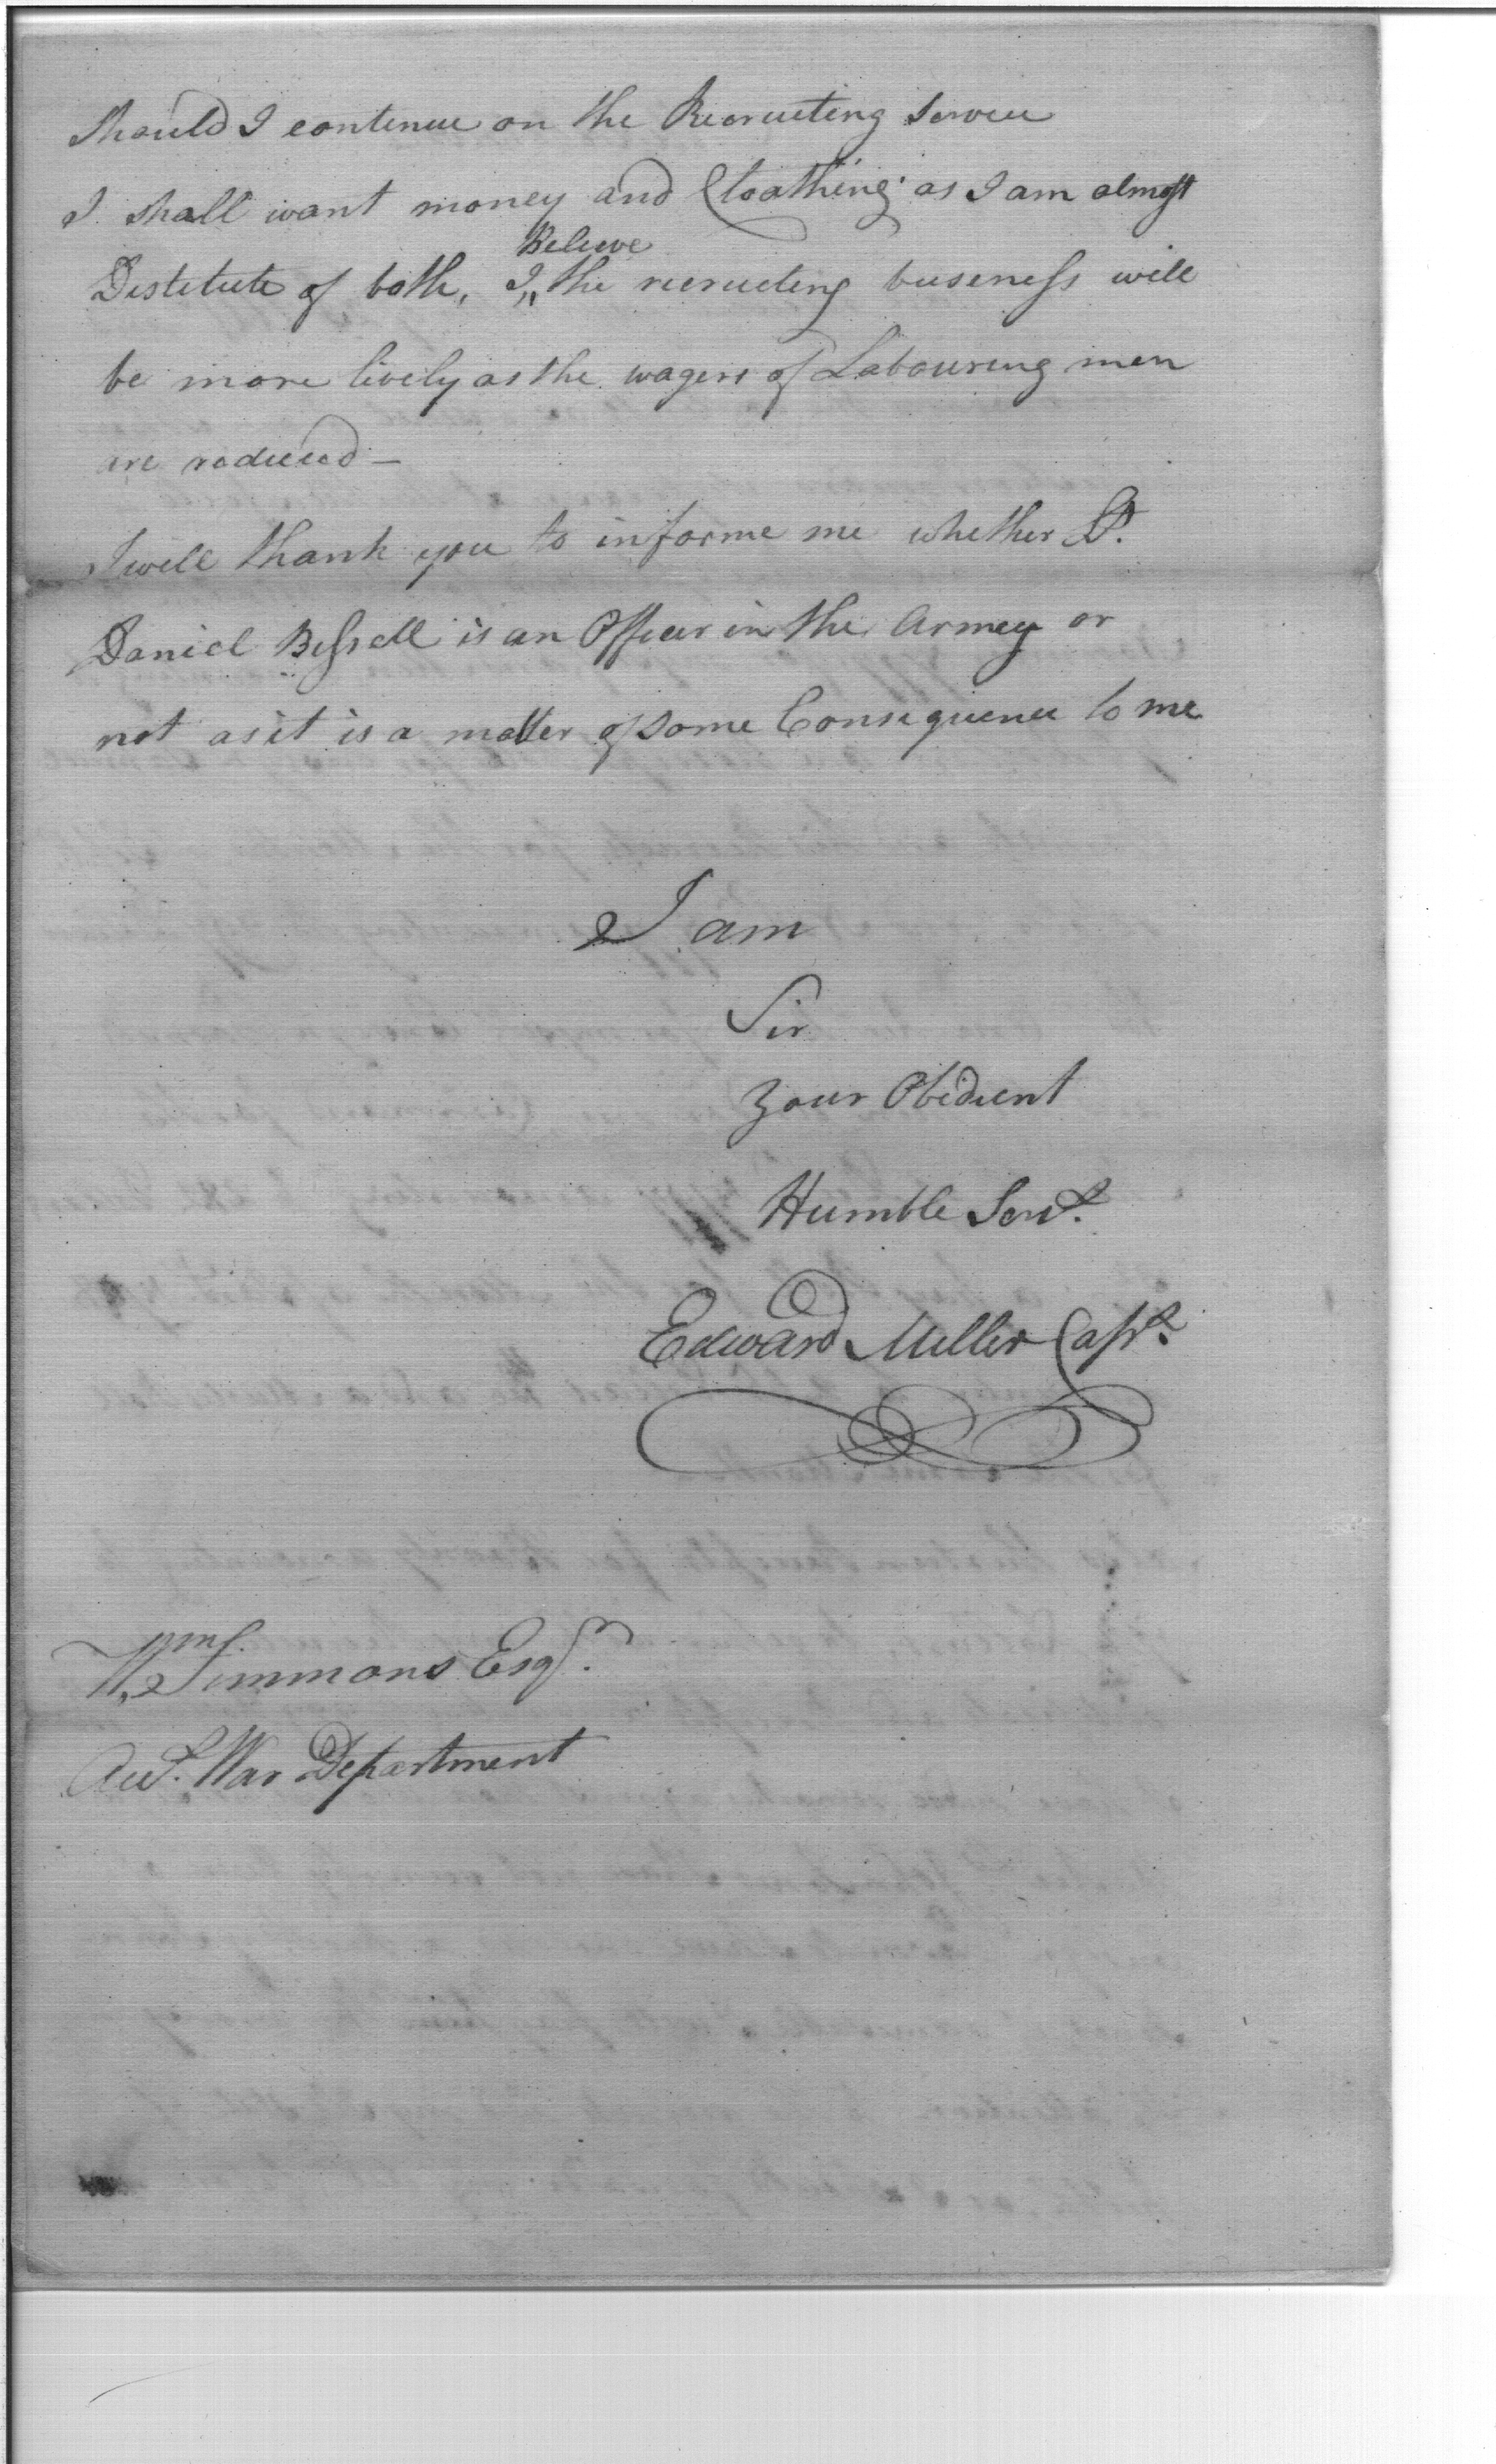 Should I contenue on the Recruiting Servce
I shall want money and Cloathing as I am almost
Destetute of both, I Beleve the recrueting buseness will
be more lively as the wagers of Labouring men
are reduced —
I well thank you to informe me whether Lt.
Daniel Bissell is an Officer in the Armey or
not as it is a matter of some Consequence to me
I am
Sir
Your Obedient
Humble Servt.
Edward Miller Capt.
Wm. Simmons Esqr.
Act. War Department